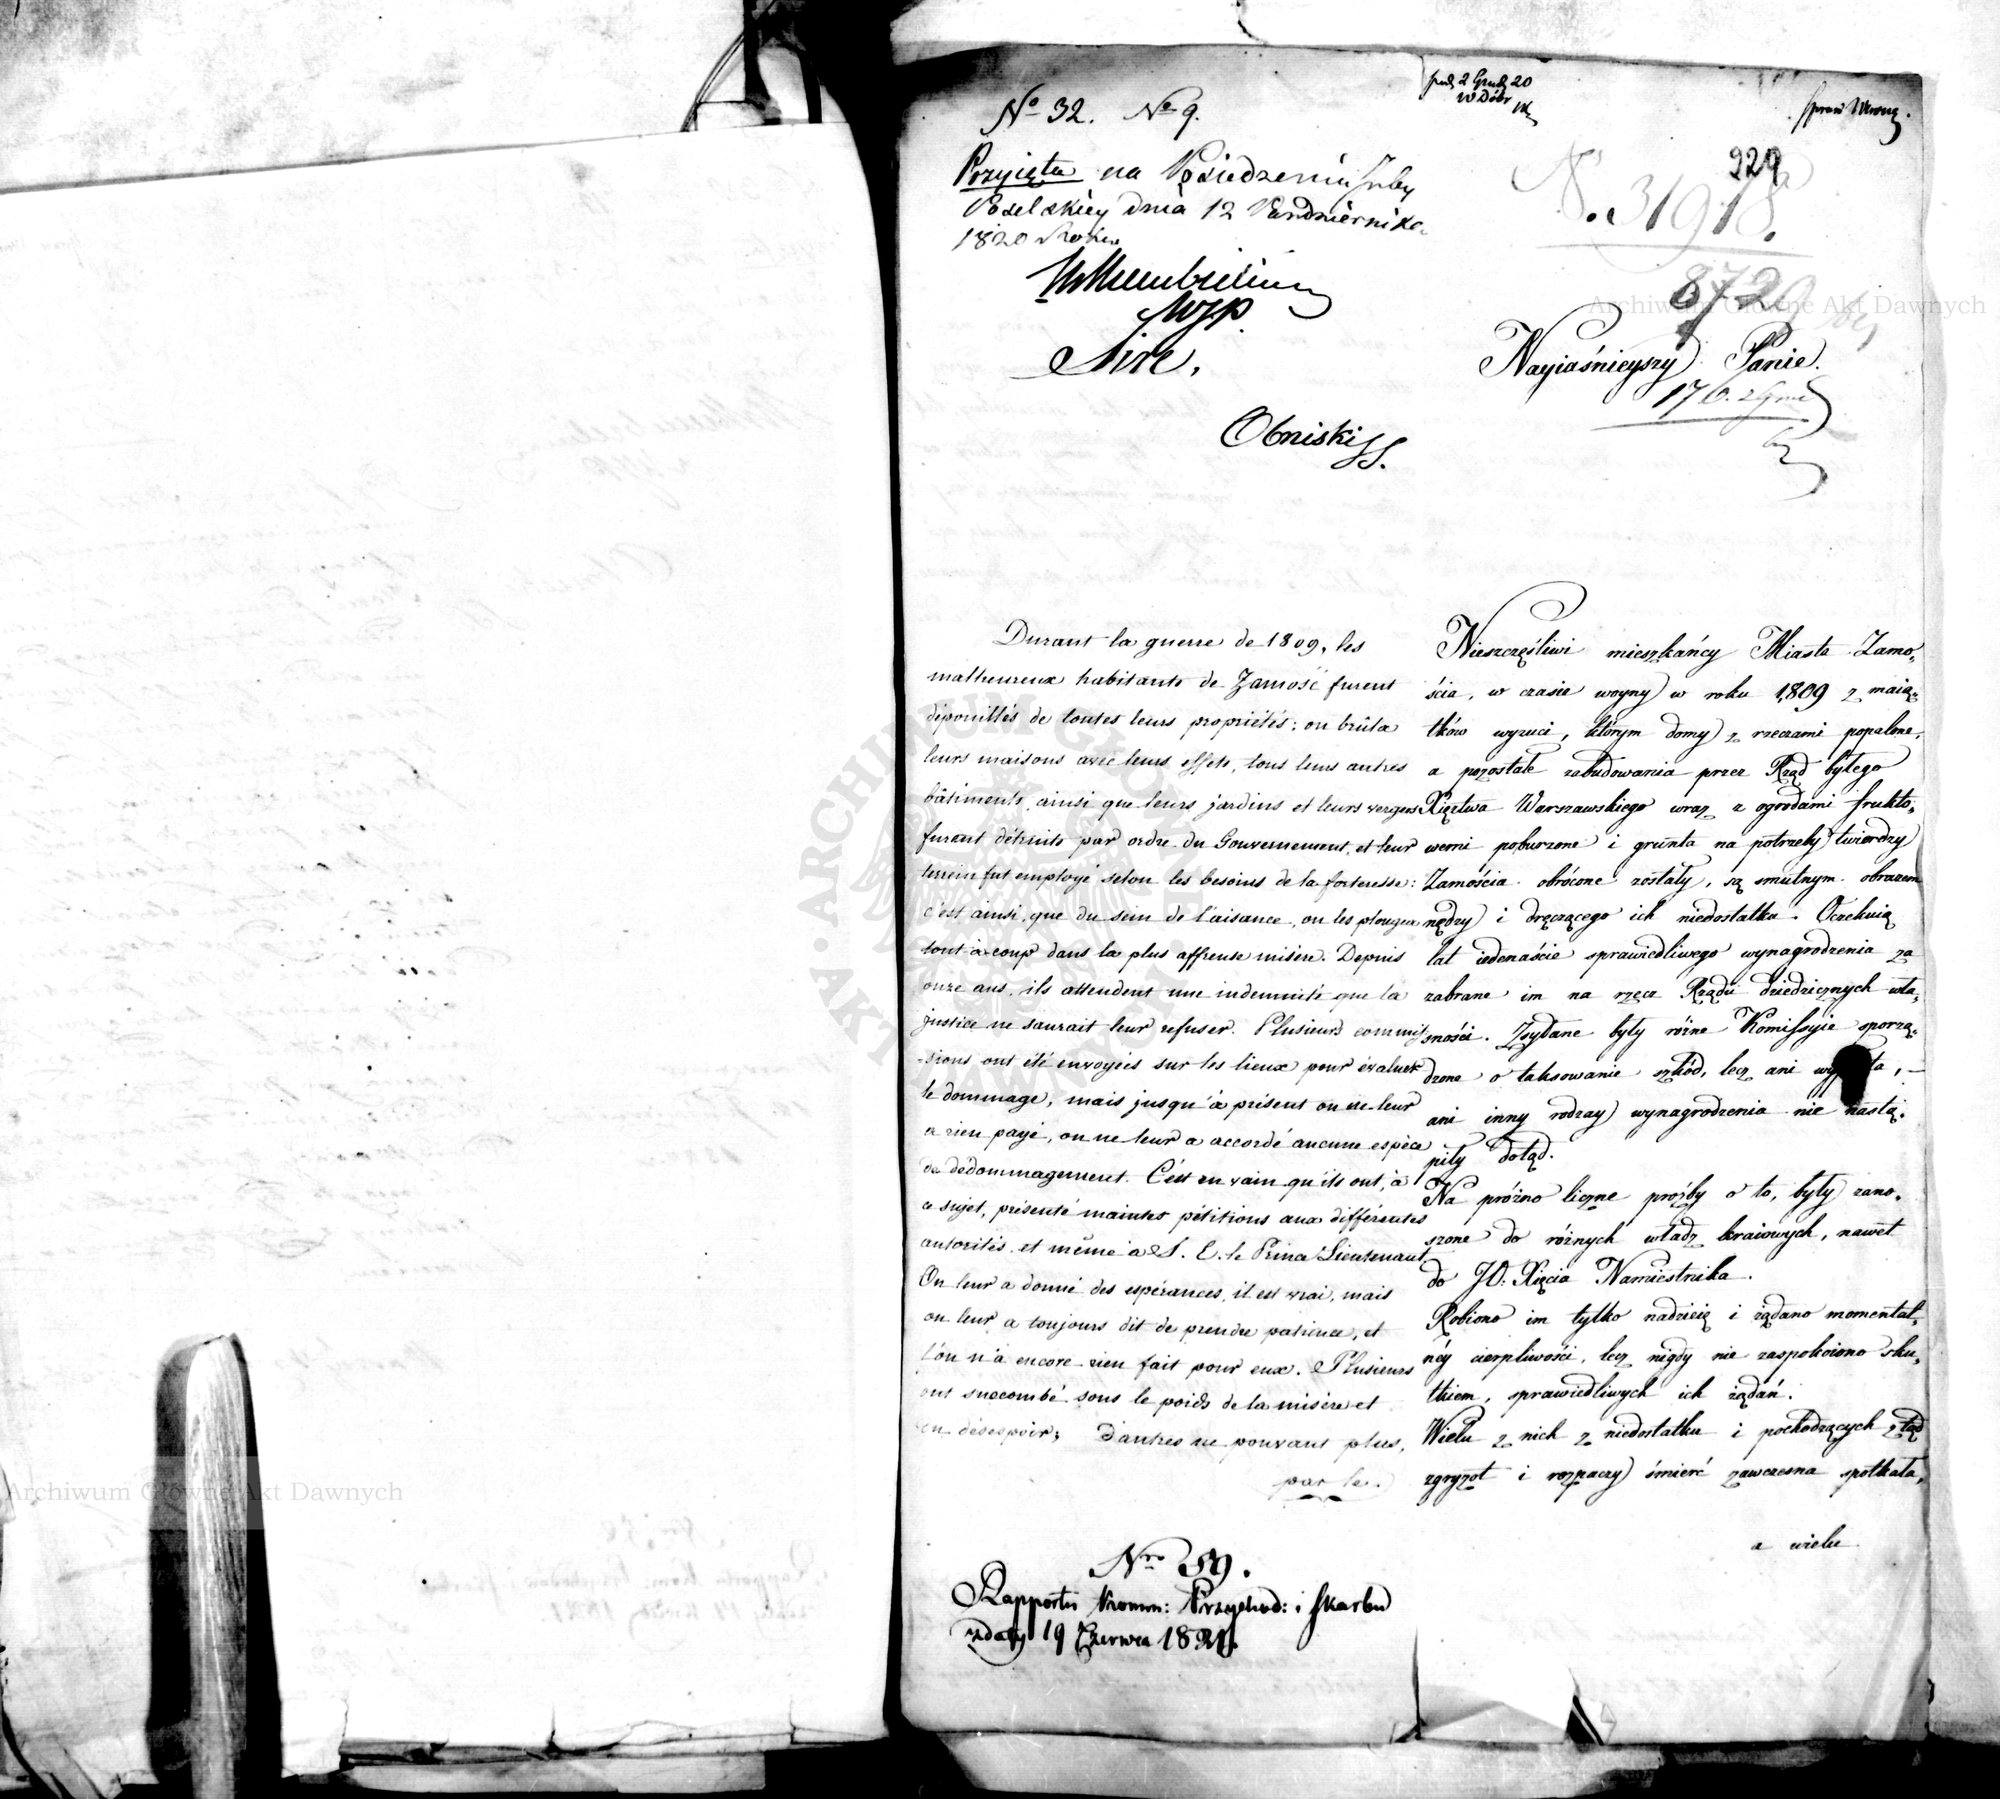 No 32. No 9.
Przyięta na Posiedzeniu Izby
Poselskiey dnia 12 Pazdziernika
1820 Roku
Sire,
Obniski SS.
929
N. 31918.
8729
Nayiaśnieyszy Panie.
Durant la guerre de 1809, les
malheureux habitants de Zamość furent
dépouillés de toutes leurs propriétés; on brûla
leurs maisons avec leurs effets, tous leurs autres
bâtiments, ainsi que leurs jardins et leurs vergers
furent détruits par ordre du Gouvernement, et leur
terrein fut employé selon les besoins de la forteresse:
c'est ainsi, que du sein de l'aisance, on les plongea
tout-à-coup dans la plus affreuse misère. Depuis
onze ans, ils attendent une indemnité que la
justice ne saurait leur refuser. Plusieurs commis
-sions ont été envoyées sur les lieux pour évaluer
le dommage, mais jusqu'à présent on ne leur
a rien payé, on ne leur a accordé aucune espèce
de dédommagement. C'est en vain qu'ils ont, à
ce sujet, présenté maintes pétitions aux différentes
autorités, et même à S. E. le Prince Lieutenant.
On leur a donné des espérances, il est vrai, mais
on leur a toujours dit de prendre patience, et
l'on n'a encore rien fait pour eux. Plusieurs
ont succombé sous le poids de la misère et
du désespoir; d'autres ne pouvant plus,
par le
Nieszczęśliwi mieszkańcy Miasta Zamo,,
ścia, w czasie woyny w roku 1,809 z maią,,
tków wyzuci, którym domy z rzeczami popalone,
a pozostałe zabudowania przez Rząd byłego
Xięztwa Warszawskiego wraz z ogrodami frukto,,
wemi poburzone i grunta na potrzeby twierdzy
Zamościa obrócone zostały, są smutnym obrazem
nędzy i dręczącego ich niedostatku. Oczekuią
lat iedenaście sprawiedliwego wynagrodzenia za
zabrane im na rzecz Rządu dziedzicznych wła,,
sności. Zsyłane były różne Komissyie sporzą,,
dzone o taksowanie szkód, lecz ani wy ta, —
ani inny rodzay wynagrodzenia nie nastą,,
piły dotąd.
Na próżno liczne proźby o to, były zano,,
szone do różnych władz kraiowych, nawet
do JO. Xięcia Namiestnika.
Robiono im tylko nadzieię i żądano momental,,
néy cierpliwości, lecz nigdy nie zaspokoiono sku,,
tkiem, sprawiedliwych ich żądań.
Wielu z nich z niedostatku i pochodzących ztąd
zgryzot i rozpaczy śmierć zawczesna spotkała,
a wielu
Nro 59.
Rapportu Komm: Przychod: i Skarbu
z daty 19 Czerwca 1821.
Archiwum Główne Akt Dawnych
Archiwum Główne Akt Dawnych